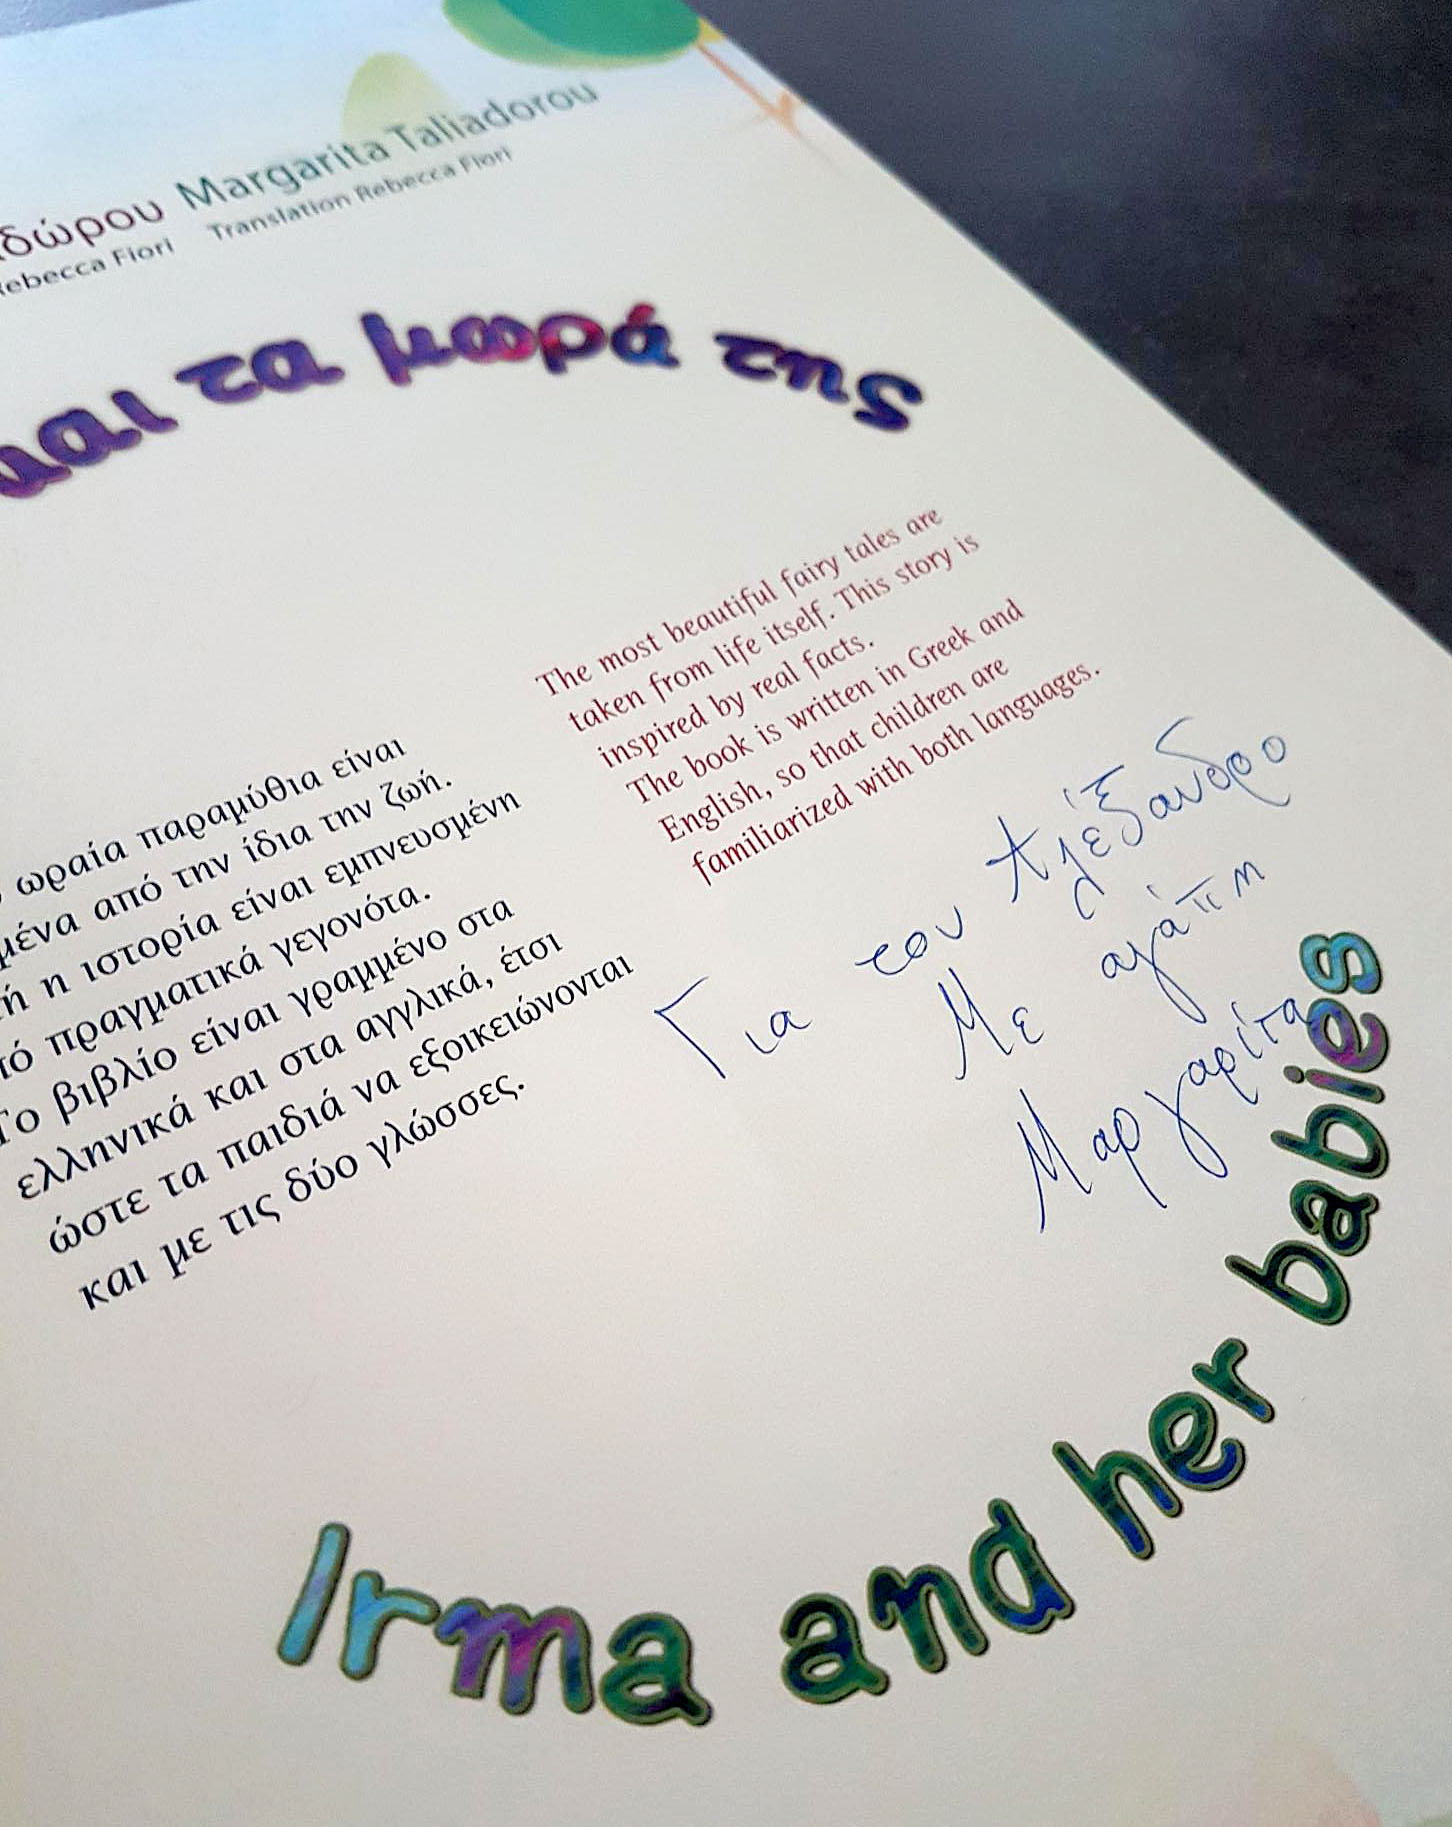 Margarita Taliadorou
Rebecca Fiori Translation Rebecca Fiori
και τα μωρά της
The most beautiful fairy tales are
taken from life itself. This story is
inspired by real facts.
The book is written in Greek and
English, so that children are
familiarized with both languages.
ωραία παραμύθια είναι
από την ίδια την ζωή.
η ιστορία είναι εμπνευσμένη
πραγματικά γεγονότα.
Το βιβλίο είναι γραμμένο στα
ελληνικά και στα αγγλικά, έτσι
ώστε τα παιδιά να εξοικειώνονται
και με τις δύο γλώσσες.
Για τον Αλέξανδρο
Με αγάπη
Μαργαρίτα
Irma and her babies